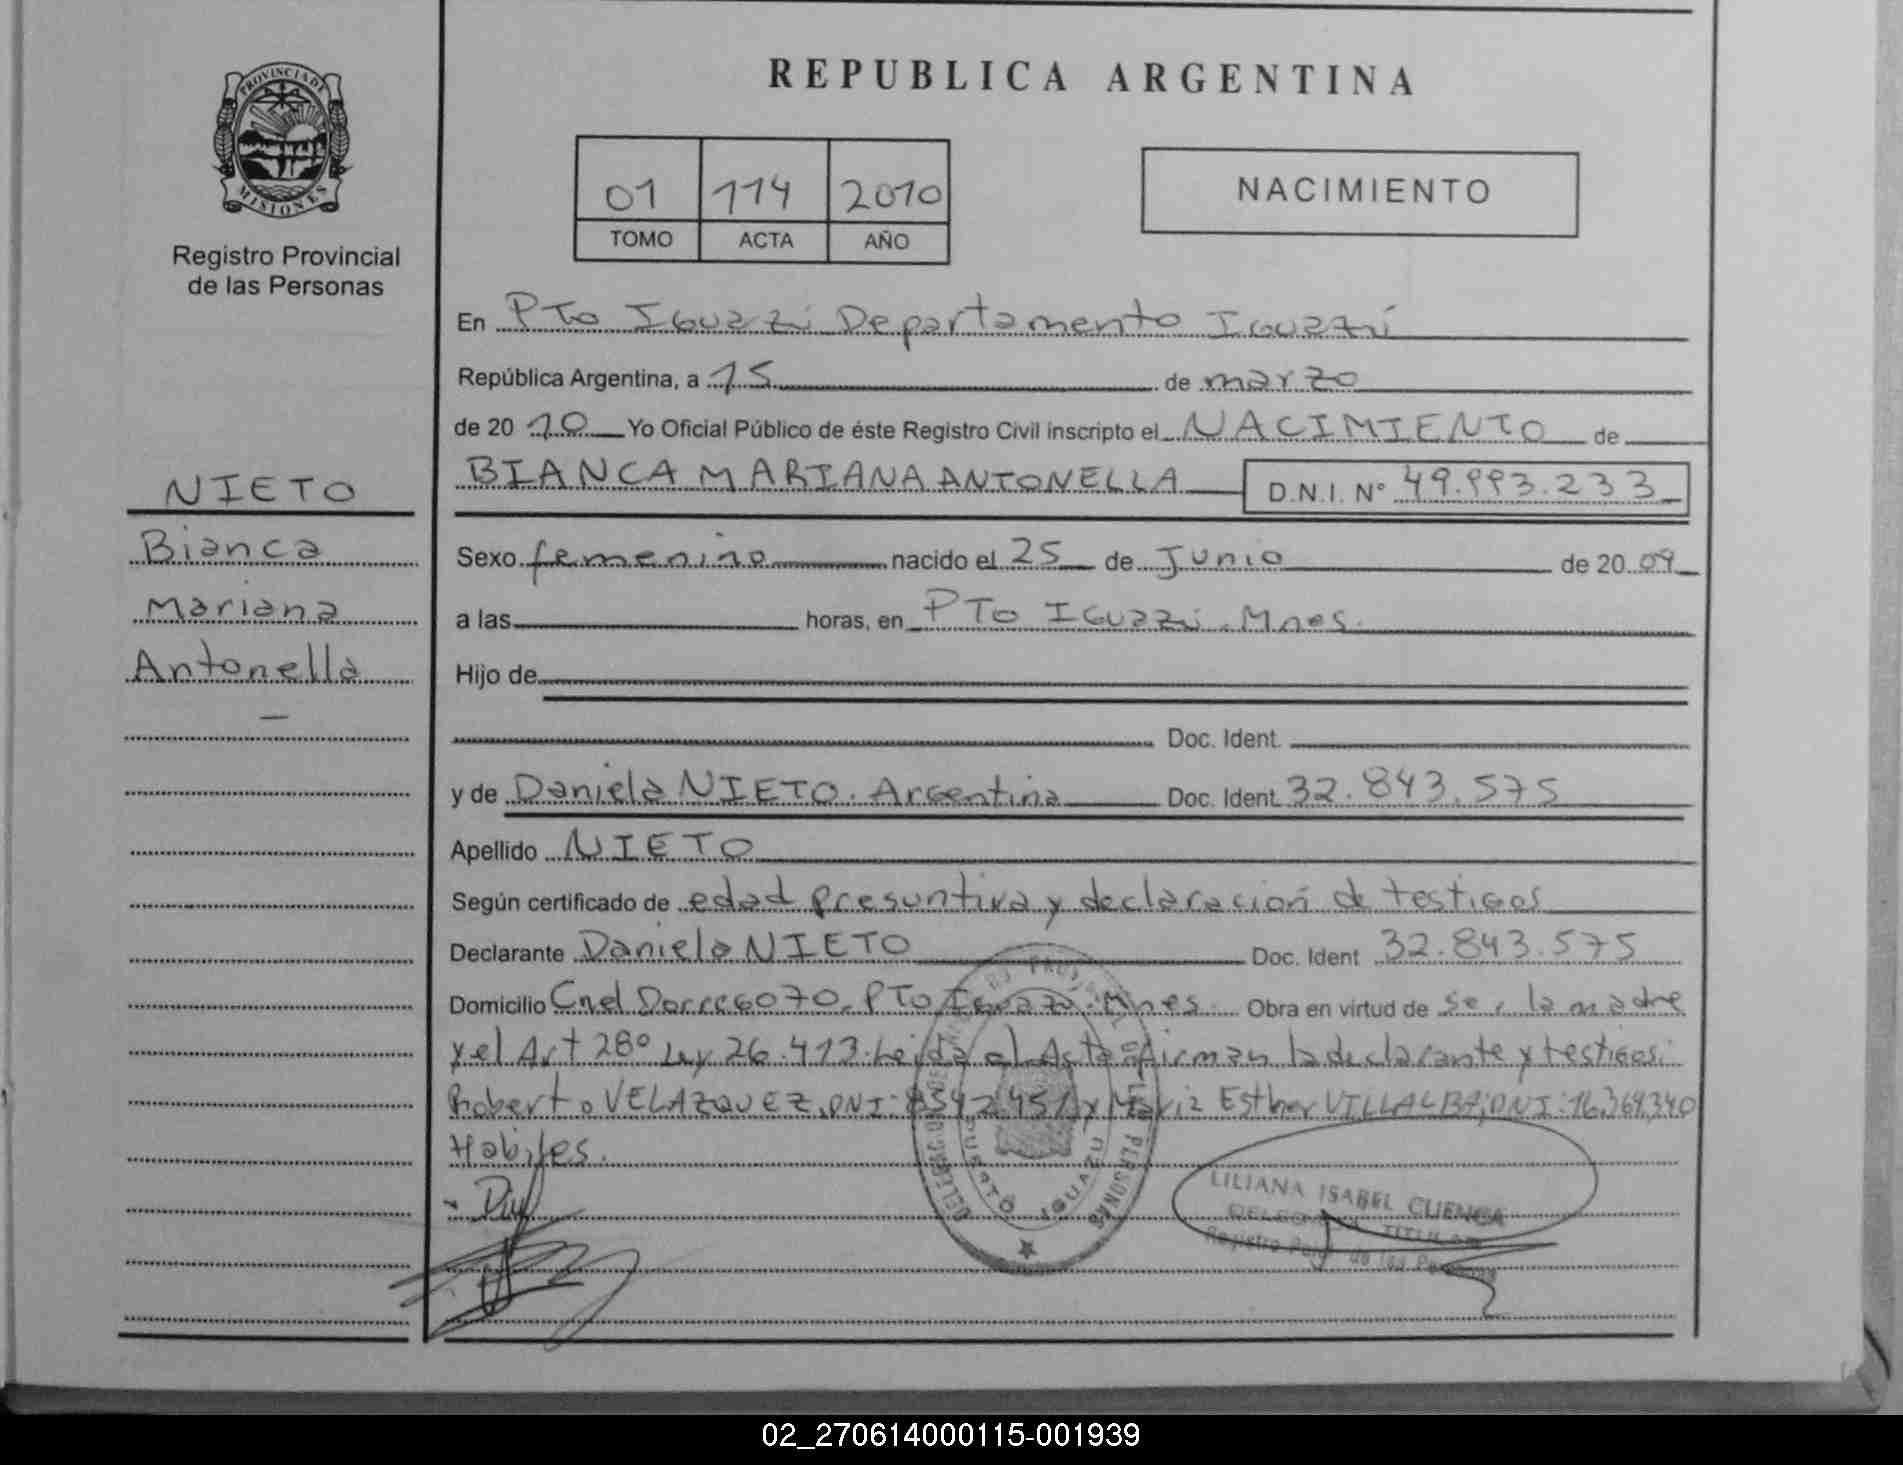 REPUBLICA ARGENTINA
PROVINCIA DE
MISIONES
Registro Provincial
de las Personas
01 114 2010
TOMO ACTA AÑO
NACIMIENTO
En Pto Iguazú Departamento Iguazú
República Argentina, a 15 de marzo
de 20 10 Yo Oficial Público de éste Registro Civil inscripto el NACIMIENTO de
BIANCA MARIANA ANTONELLA D.N.I. Nº 49.993.233
NIETO
Bianca
Mariana
Antonella
Sexo femenino nacido el 25 de Junio de 20 09
a las horas, en PTo IGUazú. Mnes.
Hijo de
Doc. Ident.
y de Daniela NIETO. Argentina Doc. Ident. 32.843.575
Apellido NIETO
Según certificado de edad presuntiva y declaración de testigos
Declarante Daniela NIETO Doc. Ident 32.843.575
Domicilio Cnel Dorrego 70. PTo Iguazú. Mnes. Obra en virtud de ser la madre
y el Art 28º Ley 26.413. Leída el Acta firman la declarante y testigos:
Roberto VELAZQUEZ, DNI: y María Esther VILLALBA, DNI: 16.369.340
Habiles.
LILIANA ISABEL CUENCA
DELEGADA TITULAR
Registro Pcial. de las Personas
PERSONAS
PUERTO IGUAZU
02_270614000115-001939